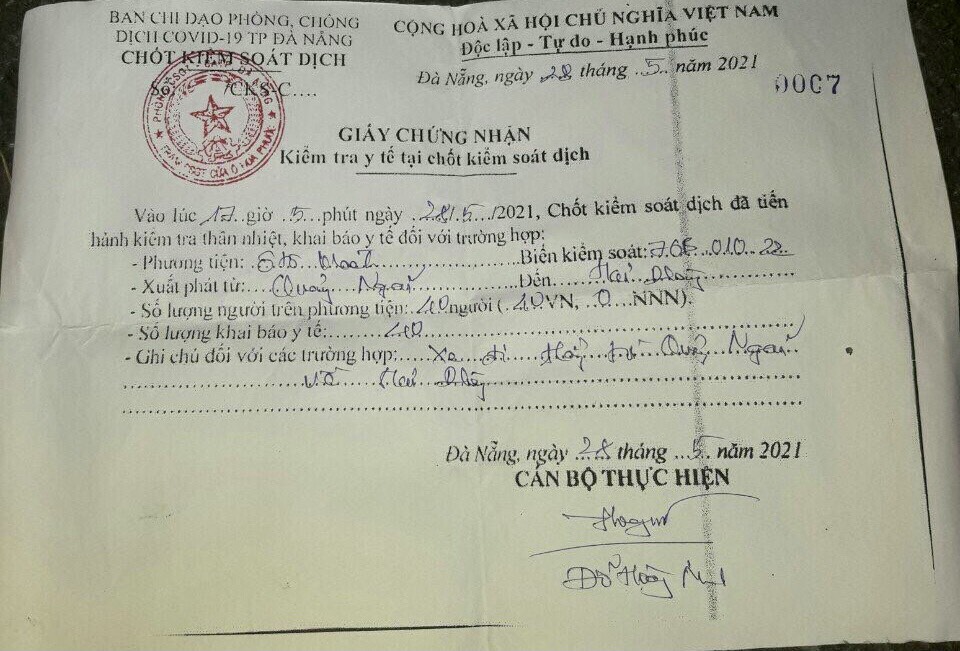 BAN CHỈ ĐẠO PHÒNG, CHỐNG
DỊCH COVID-19 TP ĐÀ NẴNG
CHỐT KIỂM SOÁT DỊCH
/CKS-C....
CỘNG HOÀ XÃ HỘI CHỦ NGHĨA VIỆT NAM
Độc lập - Tự do - Hạnh phúc
Đà Nẵng, ngày 28 tháng 5 năm 2021
0007
GIẤY CHỨNG NHẬN
Kiểm tra y tế tại chốt kiểm soát dịch
Vào lúc 17 giờ 5 phút ngày 28/5/2021, Chốt kiểm soát dịch đã tiến
hành kiểm tra thân nhiệt, khai báo y tế đối với trường hợp:
- Phương tiện: Biển kiểm soát:
- Xuất phát từ: Quảng Ngãi Đến
- Số lượng người trên phương tiện: người ( VN, 0 NNN).
- Số lượng khai báo y tế:
- Ghi chú đối với các trường hợp: Xe đi từ Quảng Ngãi
về
Đà Nẵng, ngày 28 tháng 5 năm 2021
CÁN BỘ THỰC HIỆN
Đỗ